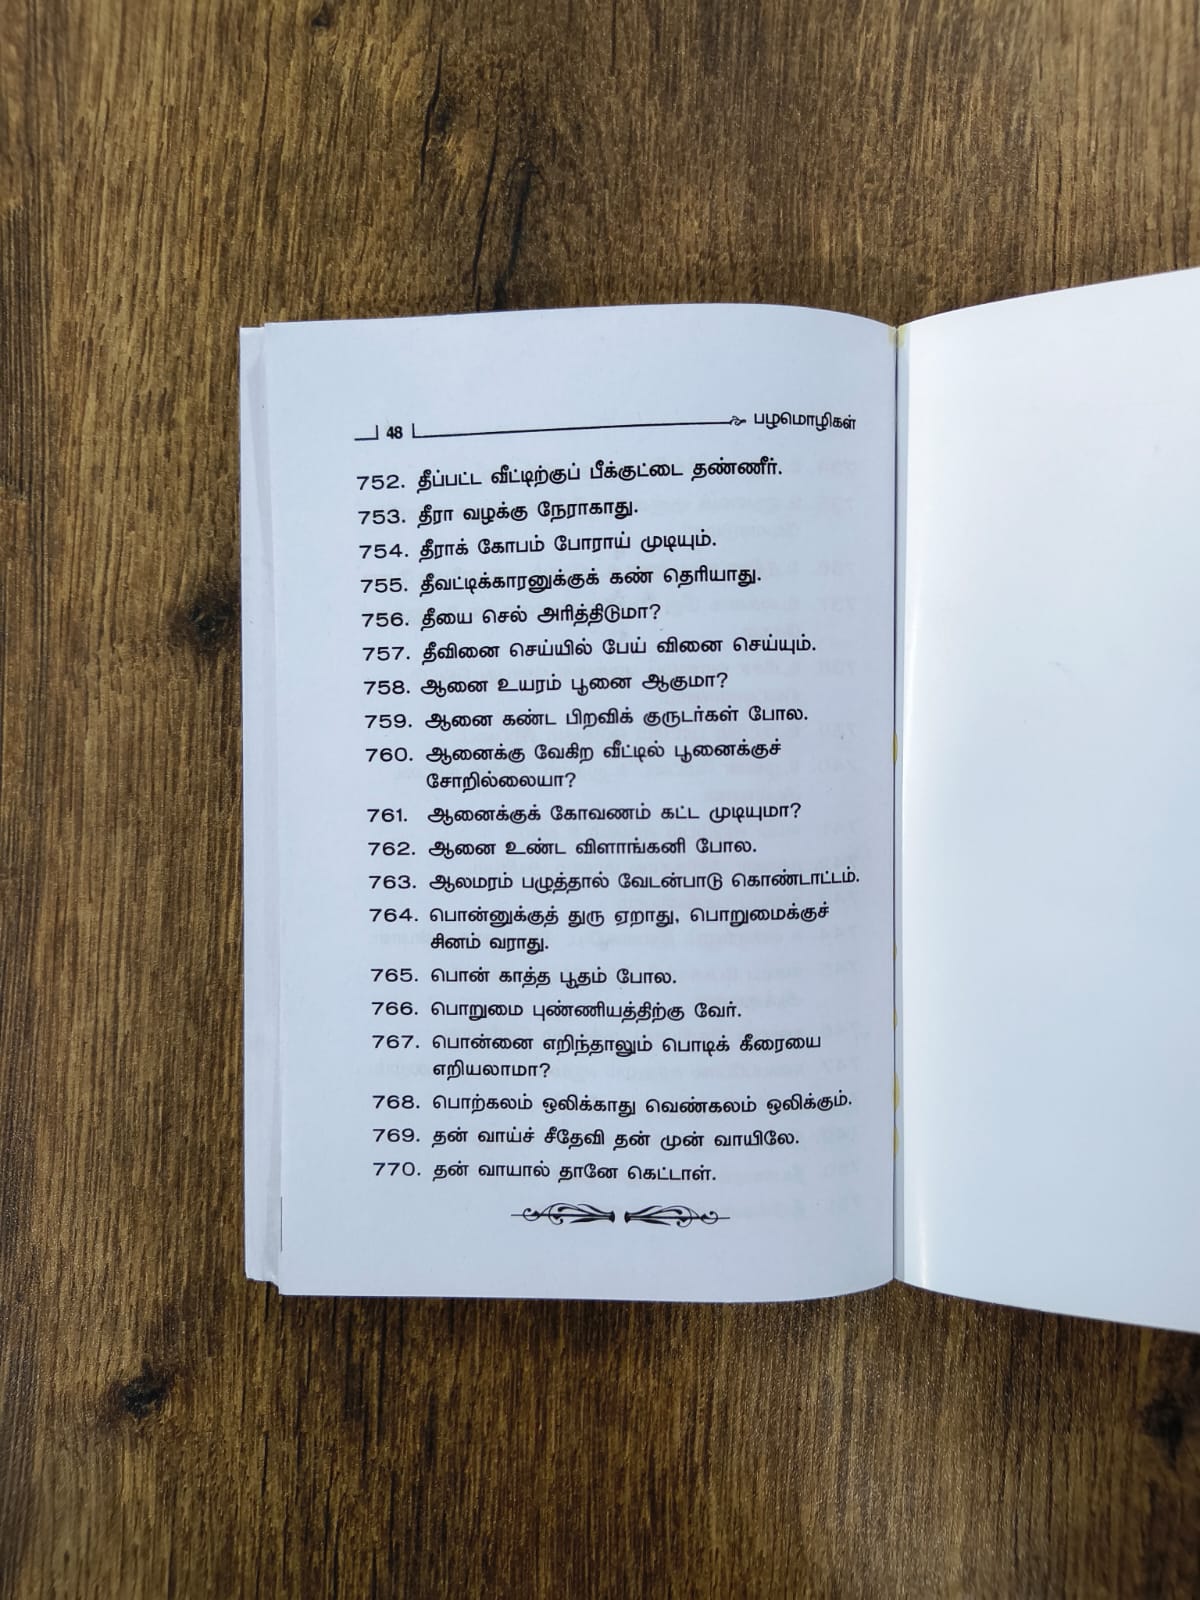 48 பழமொழிகள்
752. தீப்பட்ட வீட்டிற்குப் பீக்குட்டை தண்ணீர்.
753. தீரா வழக்கு நேராகாது.
754. தீராக் கோபம் போராய் முடியும்.
755. தீவட்டிக்காரனுக்குக் கண் தெரியாது.
756. தீயை செல் அரித்திடுமா?
757. தீவினை செய்யில் பேய் வினை செய்யும்.
758. ஆனை உயரம் பூனை ஆகுமா?
759. ஆனை கண்ட பிறவிக் குருடர்கள் போல.
760. ஆனைக்கு வேகிற வீட்டில் பூனைக்குச்
சோறில்லையா?
761. ஆனைக்குக் கோவணம் கட்ட முடியுமா?
762. ஆனை உண்ட விளாங்கனி போல.
763. ஆலமரம் பழுத்தால் வேடன்பாடு கொண்டாட்டம்.
764. பொன்னுக்குத் துரு ஏறாது, பொறுமைக்குச்
சினம் வராது.
765. பொன் காத்த பூதம் போல.
766. பொறுமை புண்ணியத்திற்கு வேர்.
767. பொன்னை எறிந்தாலும் பொடிக் கீரையை
எறியலாமா?
768. பொற்கலம் ஒலிக்காது வெண்கலம் ஒலிக்கும்.
769. தன் வாய்ச் சீதேவி தன் முன் வாயிலே.
770. தன் வாயால் தானே கெட்டாள்.